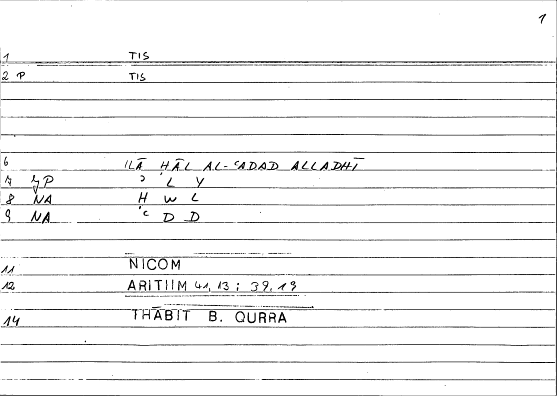 1
1 TIS
2 P TIS
6 ILĀ ḤĀL AL-ʿADAD ALLADHĪ
ʾ L Y
8 NA H W L
9 NA ʿ D D
11 NICOM
12 ARITIIM 41, 13 ; 39, 19
14 THĀBIT B. QURRA